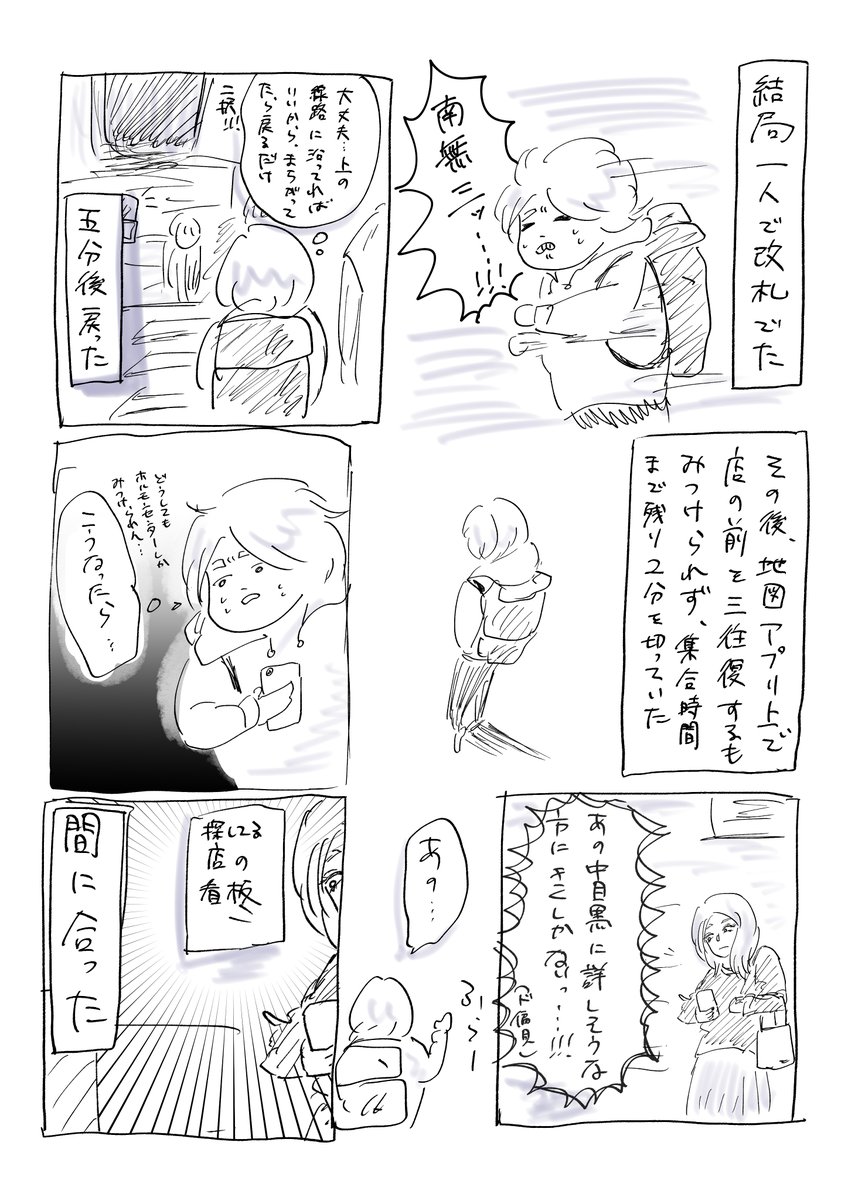 結局一人で改札でた
南無ニッ・・・・!!!
大丈夫…上の
線路に沿ってれば
いいから、まちがって
たら戻るだけ
二択!!!
五分後戻った
その後、地図アプリ上で
店の前を三往復するも
みつけられず、集合時間
まで残り2分を切っていた
どうしても
ホルモンセンターしか
みつけられん…
こうなったら…
あの中目黒に詳しそうな
方にきくしかないっ…!!!
(ド偏見)
あの…
ふらー
探してる
店の
看板
間に合った